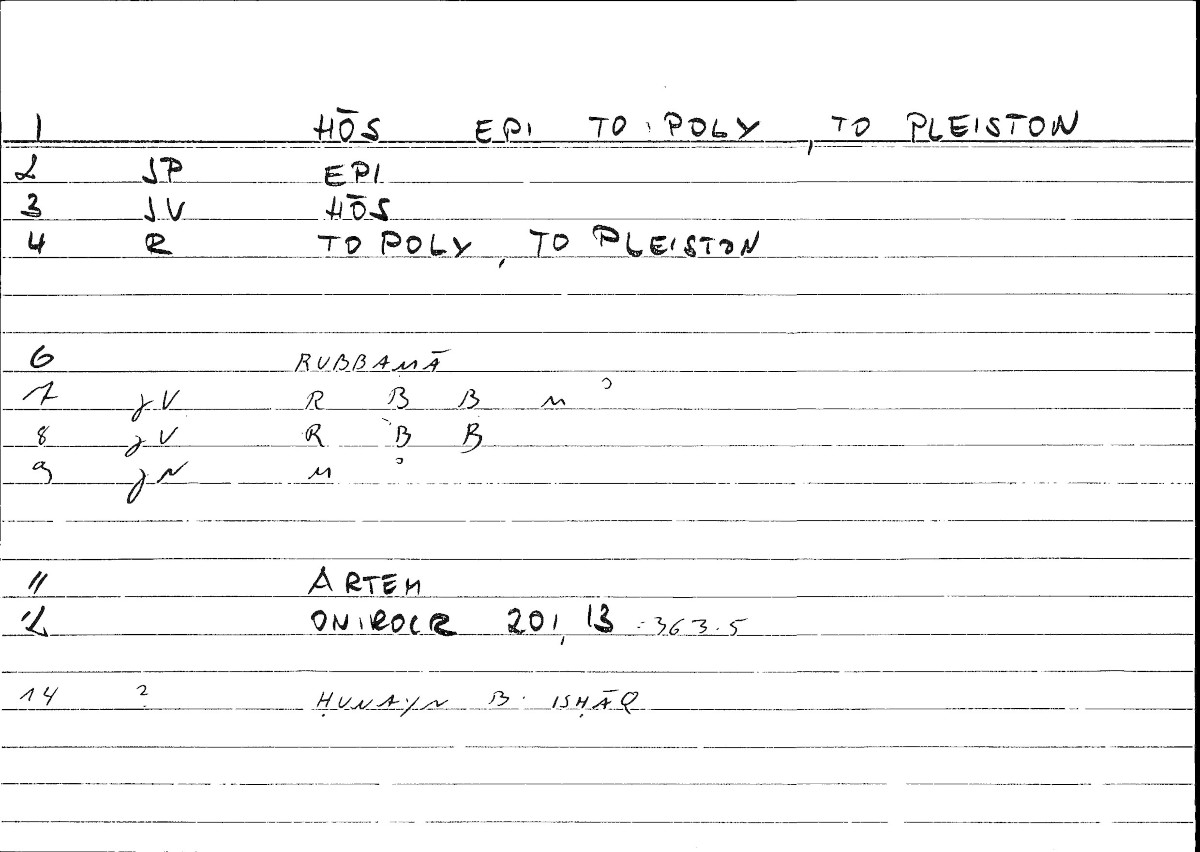 1 HŌS EPI TO POLY, TO PLEISTON
2 JP EPI
3 JV HŌS
4 R TO POLY, TO PLEISTON
6 RUBBAMĀ
7 jV R B B M ʾ
8 jV R B B
9 jN M ʾ
11 ARTEM
12 ONIROCR 201, 13 : 363.5
14 ? ḤUNAYN B. ISḤĀQ